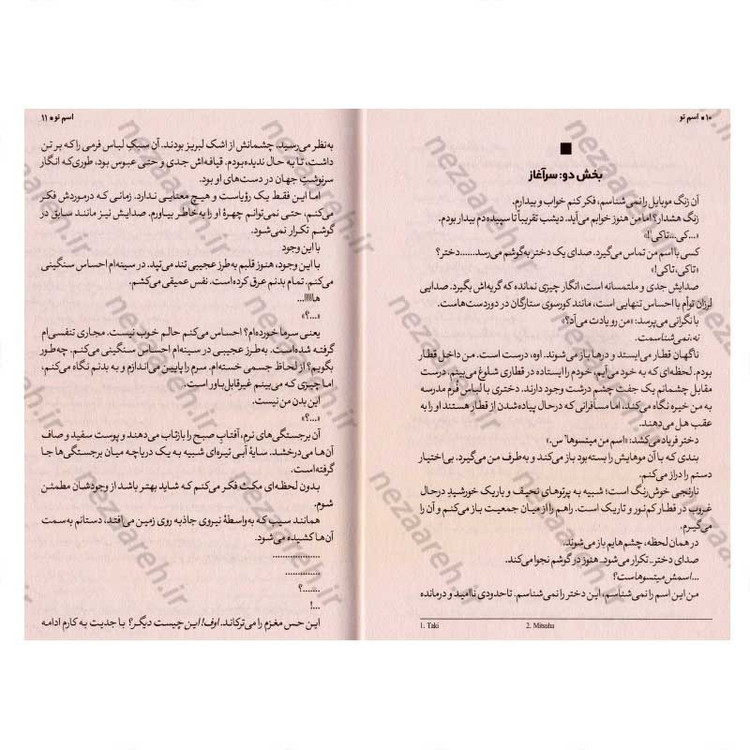 ۱۰ • اسم تو
بخش دو: سرآغاز
آن زنگ موبایل را نمی‌شناسم، فکر کنم خواب و بیدارم.
زنگ هشدار؟ اما من هنوز خوابم می‌آید. دیشب تقریباً تا سپیده‌دم بیدار بودم.
«...کی...تاکی۱!»
کسی با اسم من تماس می‌گیرد. صدای یک دختر به‌گوشم می‌رسد.......دختر؟
«تاکی، تاکی!»
صدایش جدی و ملتمسانه است، انگار چیزی نمانده که گریه‌اش بگیرد. صدایی
لرزان توأم با احساس تنهایی است، مانند کورسوی ستارگان در دوردست‌هاست.
با نگرانی می‌پرسد: «من رو یادت می‌آد؟»
نه، نمی‌شناسمت.
ناگهان قطار می‌ایستد و درها باز می‌شوند. اوه، درست است. من داخل قطار
بودم. لحظه‌ای که به خود می‌آیم، خودم را ایستاده در قطاری شلوغ می‌بینم، درست
مقابل چشمانم یک جفت چشم درشت وجود دارند. دختری با لباس فرم مدرسه
به من خیره نگاه می‌کند، اما مسافرانی که درحال پیاده‌شدن از قطار هستند او را به
عقب هل می‌دهند.
دختر فریاد می‌کشد: «اسم من میتسوها۲ س.»
بندی که با آن موهایش را بسته بود باز می‌کند و به‌طرف من می‌گیرد. بی‌اختیار
دستم را دراز می‌کنم.
نارنجی خوش‌رنگ است؛ شبیه به پرتوهای نحیف و باریک خورشیدِ درحال
غروب در قطار کم‌نور و تاریک است. راهم را از میان جمعیت باز می‌کنم و آن را
می‌گیرم.
در همان لحظه، چشم‌هایم باز می‌شوند.
صدای دختر...تکرار می‌شود...هنوز در گوشم نجوا می‌کند.
...اسمش میتسوهاست؟
من این اسم را نمی‌شناسم، این دختر را نمی‌شناسم. تاحدودی ناامید و درمانده
1. Taki 2. Mitsuha
اسم تو • ۱۱
به‌نظر می‌رسید، چشمانش از اشک لبریز بودند. آن سبکِ لباس فرمی را که بر تن
داشت، تا به حال ندیده بودم. قیافه‌اش جدی و حتی عبوس بود، طوری‌که انگار
سرنوشت جهان در دست‌های او بود.
اما این فقط یک رؤیاست و هیچ معنایی ندارد. زمانی که درموردش فکر
می‌کنم، حتی نمی‌توانم چهرهٔ او را به‌خاطر بیاورم. صدایش نیز مانند سابق در
گوشم تکرار نمی‌شود.
با این وجود
با این وجود، هنوز قلبم به‌طرز عجیبی تند می‌تپد. در سینه‌ام احساس سنگینی
می‌کنم. تمام بدنم عرق کرده است. نفس عمیقی می‌کشم.
هااااا...
«...؟»
یعنی سرما خورده‌ام؟ احساس می‌کنم حالم خوب نیست. مجاری تنفسی‌ام
گرفته شده است. به‌طرز عجیبی در سینه‌ام احساس سنگینی می‌کنم. چه‌طور
بگویم؟ از لحاظ جسمی خسته‌ام. سرم را پایین می‌اندازم و به بدنم نگاه می‌کنم،
اما چیزی که می‌بینم غیرقابل‌باور است.
این بدن من نیست.
«...؟»
آن برجستگی‌های نرم، آفتابِ صبح را بازتاب می‌دهند و پوست سفید و صاف
آن‌ها می‌درخشد. سایهٔ آبی تیره‌ای شبیه به یک دریاچه میان برجستگی‌ها جا
گرفته است.
بدون لحظه‌ای مکث فکر می‌کنم که شاید بهتر باشد از وجودشان مطمئن
شوم.
همانند سیب که به‌واسطهٔ نیروی جاذبه روی زمین می‌افتد، دستانم به‌سمت
آن‌ها کشیده می‌شود.
..................
.............
.......؟
...!
این حس مغزم را می‌ترکاند. اوف! این چیست دیگر؟ با جدیت به کارم ادامه
nezaareh.ir